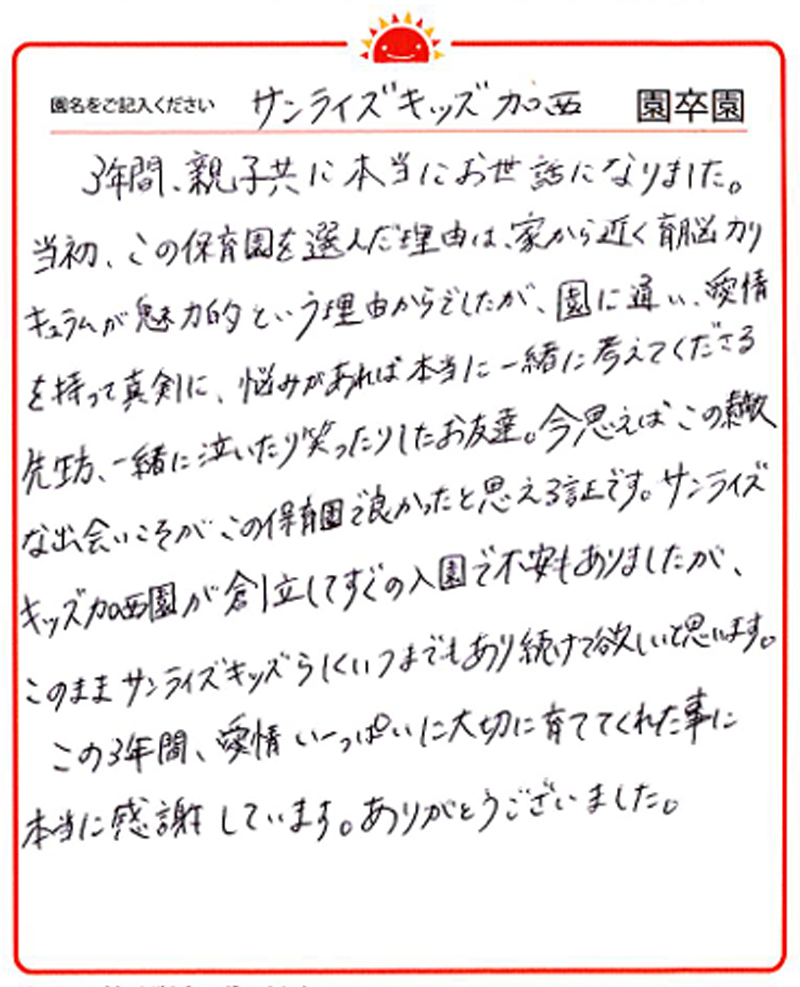 園名をご記入ください サンライズキッズ加西 園卒園
3年間、親子共に本当にお世話になりました。
当初、この保育園を選んだ理由は、家から近く育脳カリ
キュラムが魅力的という理由からでしたが、園に通い、愛情
を持って真剣に、悩みがあれば本当に一緒に考えてくださる
先生方、一緒に泣いたり笑ったりしたお友達。今思えばこの素敵
な出会いこそがこの保育園で良かったと思える証です。サンライズ
キッズ加西園が創立してすぐの入園で不安もありましたが、
このままサンライズキッズらしくいつまでもあり続けて欲しいと思います。
この3年間、愛情いーっぱいに大切に育ててくれた事に
本当に感謝しています。ありがとうございました。